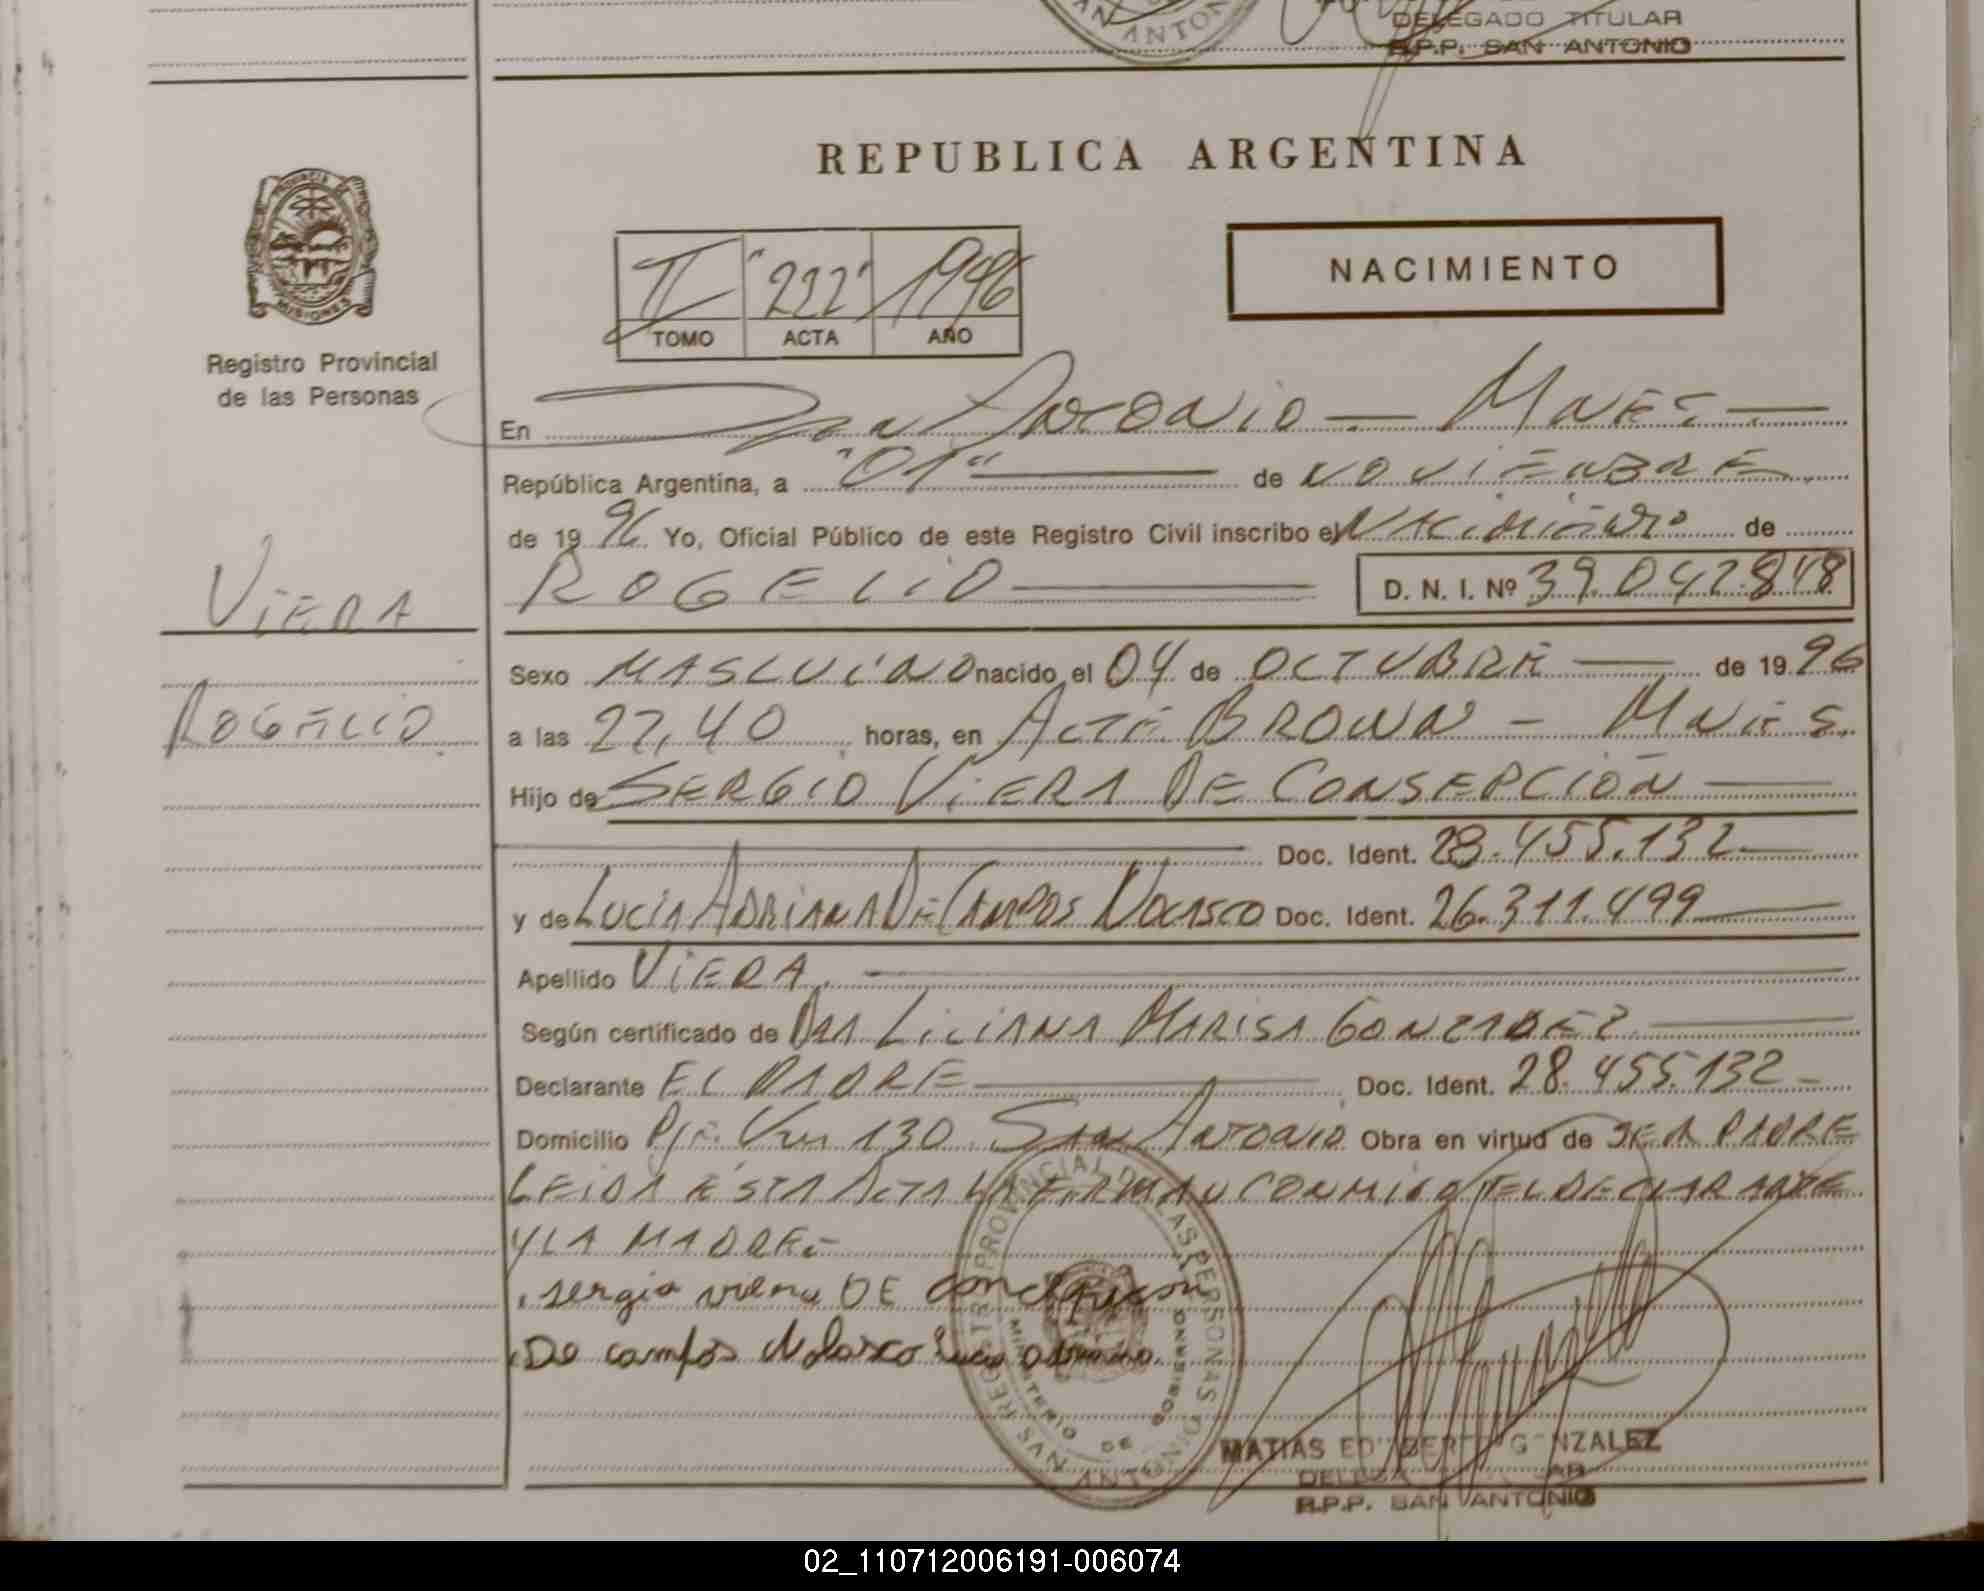 SAN ANTONIO
DELEGADO TITULAR
R.P.P. SAN ANTONIO
REPUBLICA ARGENTINA
PROVINCIA DE MISIONES
II "222" 1996
TOMO ACTA AÑO
NACIMIENTO
Registro Provincial
de las Personas
En San Antonio — Mnes —
República Argentina, a "01" de NOVIEMBRE
de 1996 Yo, Oficial Público de este Registro Civil inscribo el NACIMIENTO de
ROGELIO D. N. I. Nº 39.042.848
VIERA
ROGELIO
Sexo MASCULINO nacido el 04 de OCTUBRE de 1996
a las 22,40 horas, en ALTE BROWN - MNES.
Hijo de SERGIO VIERA DE CONSEPCIÓN
Doc. Ident. 28.455.132
y de LUCIA ADRIANA DE CAMPOS NOLASCO Doc. Ident. 26.311.499
Apellido VIERA
Según certificado de DRA LILIANA MARISA GONZALEZ
Declarante EL PADRE Doc. Ident. 28.455.132
Domicilio Pje. 130 SAN ANTONIO Obra en virtud de SER PADRE
LEIDA ÉSTA ACTA LA FIRMAN CONMIGO EL DECLARANTE
Y LA MADRE
Sergio viera DE concepcion
De campos Nolasco Lucia Adriana
REGISTRO PROVINCIAL DE LAS PERSONAS
MINISTERIO DE GOBIERNO
SAN ANTONIO
MATIAS EDILBERTO GONZALEZ
R.P.P. SAN ANTONIO
02_110712006191-006074